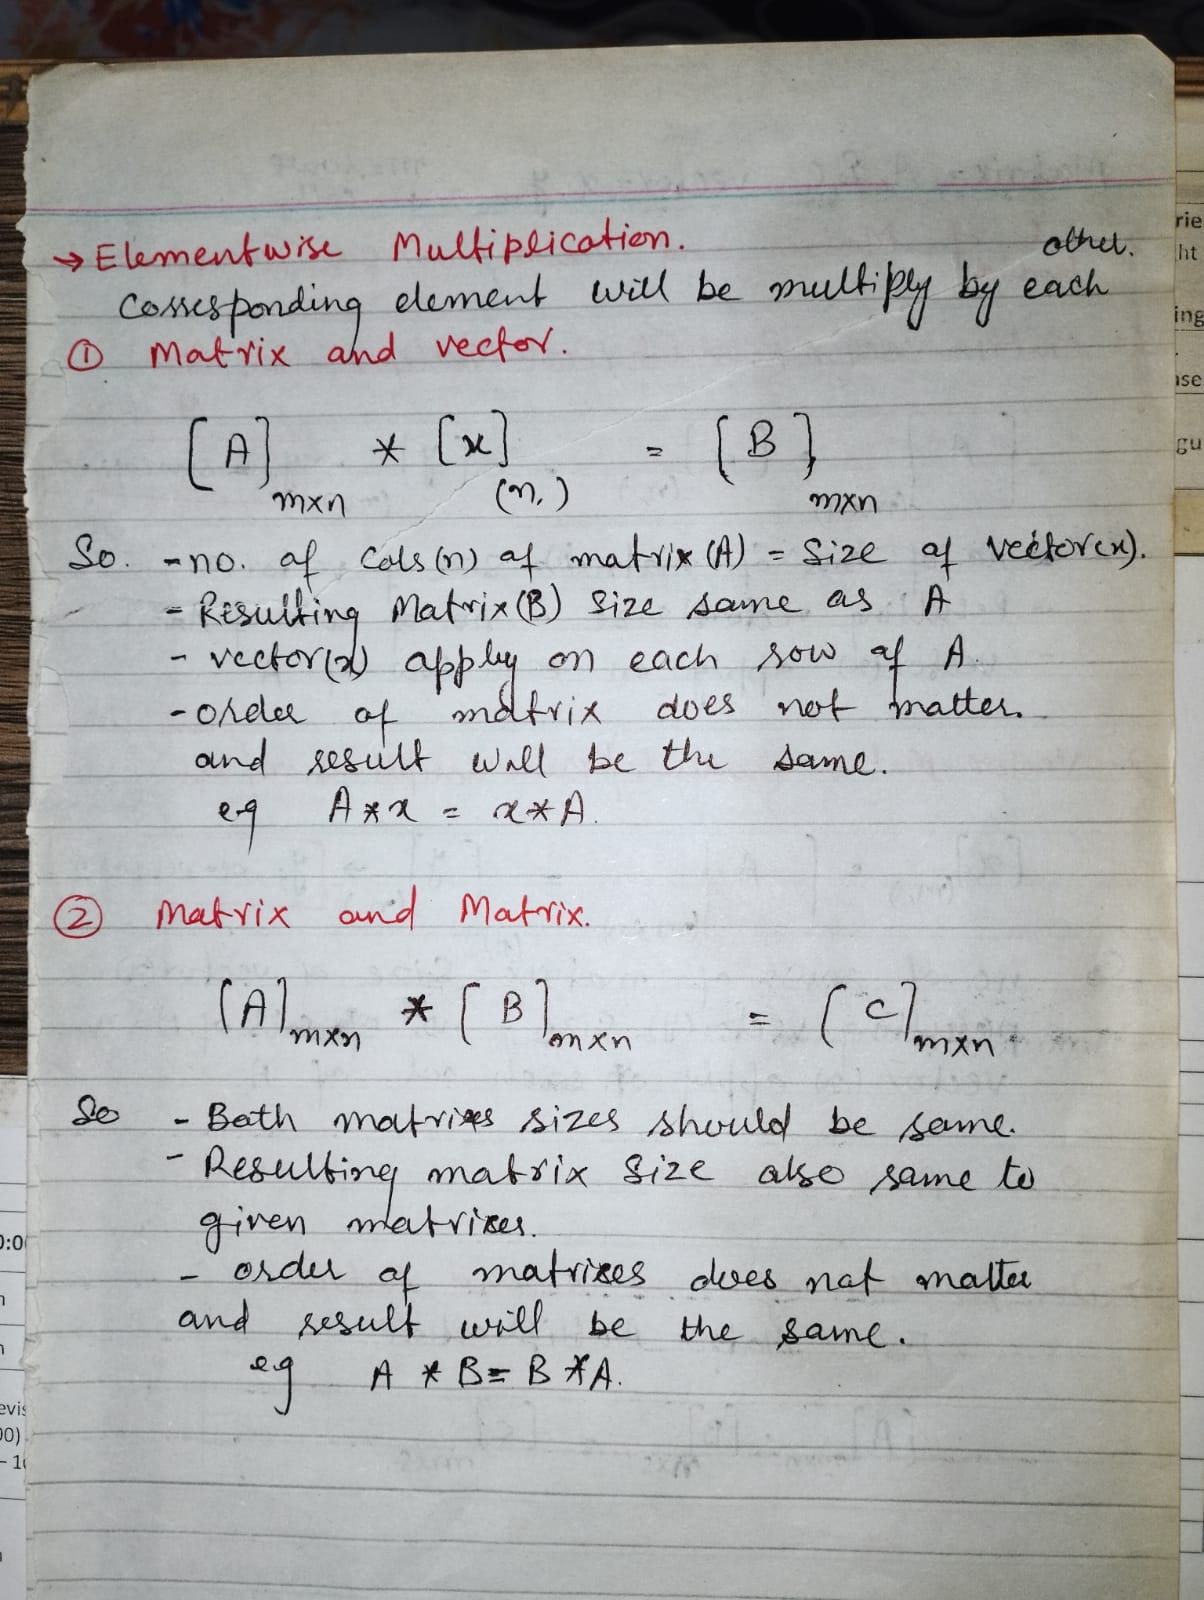 → Elementwise Multiplication.
Corresponding element will be multiply by each other.
① Matrix and vector.
[A]mxn * [x](n,) = [B]mxn
So. - no. of Cols(n) of matrix(A) = Size of vector(x).
- Resulting Matrix(B) Size same as A
- vector(x) apply on each row of A.
- order of matrix does not matter.
and result will be the same.
eg A*x = x*A.
② Matrix and Matrix.
[A]mxn * [B]mxn = [C]mxn
So - Both matrixes sizes should be same.
- Resulting matrix Size also same to
given matrixes.
- order of matrixes does not matter
and result will be the same.
eg A * B = B * A.
rie
ht
ing
nse
gu
0:0
evis
00)
- 10